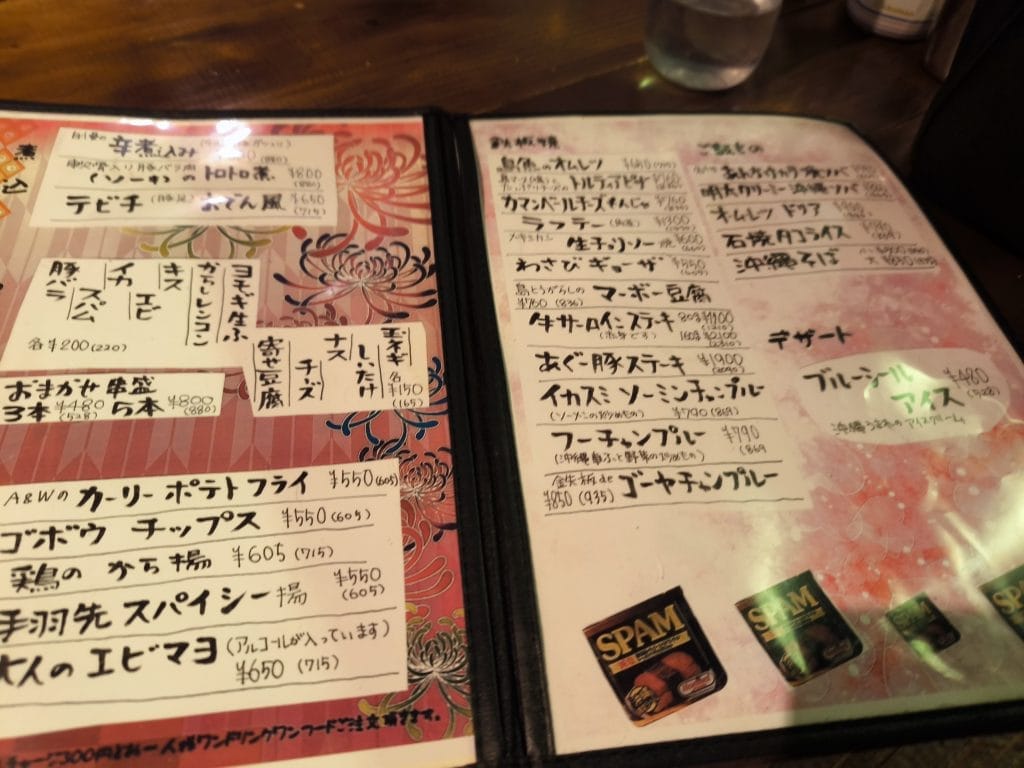 辛煮込み
軟骨入り豚バラ肉
(ソーキ)のトロトロ煮 ¥800
(880)
テビチ(豚足)おでん風 ¥650
(715)
ヨモギ生ふ
からしレンコン
キス
エビ
イカ
スパム
豚バラ
各¥200(220)
玉ネギ
しいたけ
ナス
チーズ
寄せ豆腐
各¥150
(165)
おまかせ串盛
3本 ¥480 5本 ¥800
(528) (880)
A&Wの カーリーポテトフライ ¥550(605)
ゴボウ チップス ¥550(605)
鶏の から揚 ¥605(715)
手羽先 スパイシー揚 ¥550
(605)
大人の エビマヨ (アルコールが入っています)
¥650(715)
チャージ300円とお一人様ワンドリンクワンフードご注文頂きます。
鉄板焼
島魚のオムレツ
トルティアピザ
カマンベールチーズ
ラフテー
生チョリソー ¥600
(660)
わさび ギョーザ ¥550
(605)
島とうがらしの マーボー豆腐
¥760(836)
牛サーロインステキ 80g ¥1100
(1210)
160g ¥2100
(2310)
あぐー豚ステーキ ¥1900
(2090)
イカスミ ソーミンチャンプルー
(ソーメンの炒めもの) ¥790(869)
フーチャンプルー ¥790
(869
鉄板de ゴーヤチャンプルー
¥850(935)
明太クリーミー沖縄ソバ
オムレツ ドリア
石焼タコライス
沖縄そば
デザート
ブルーシール アイス ¥480
(528)
沖縄うまれのアイスクリーム
SPAM
SPAM
SPAM